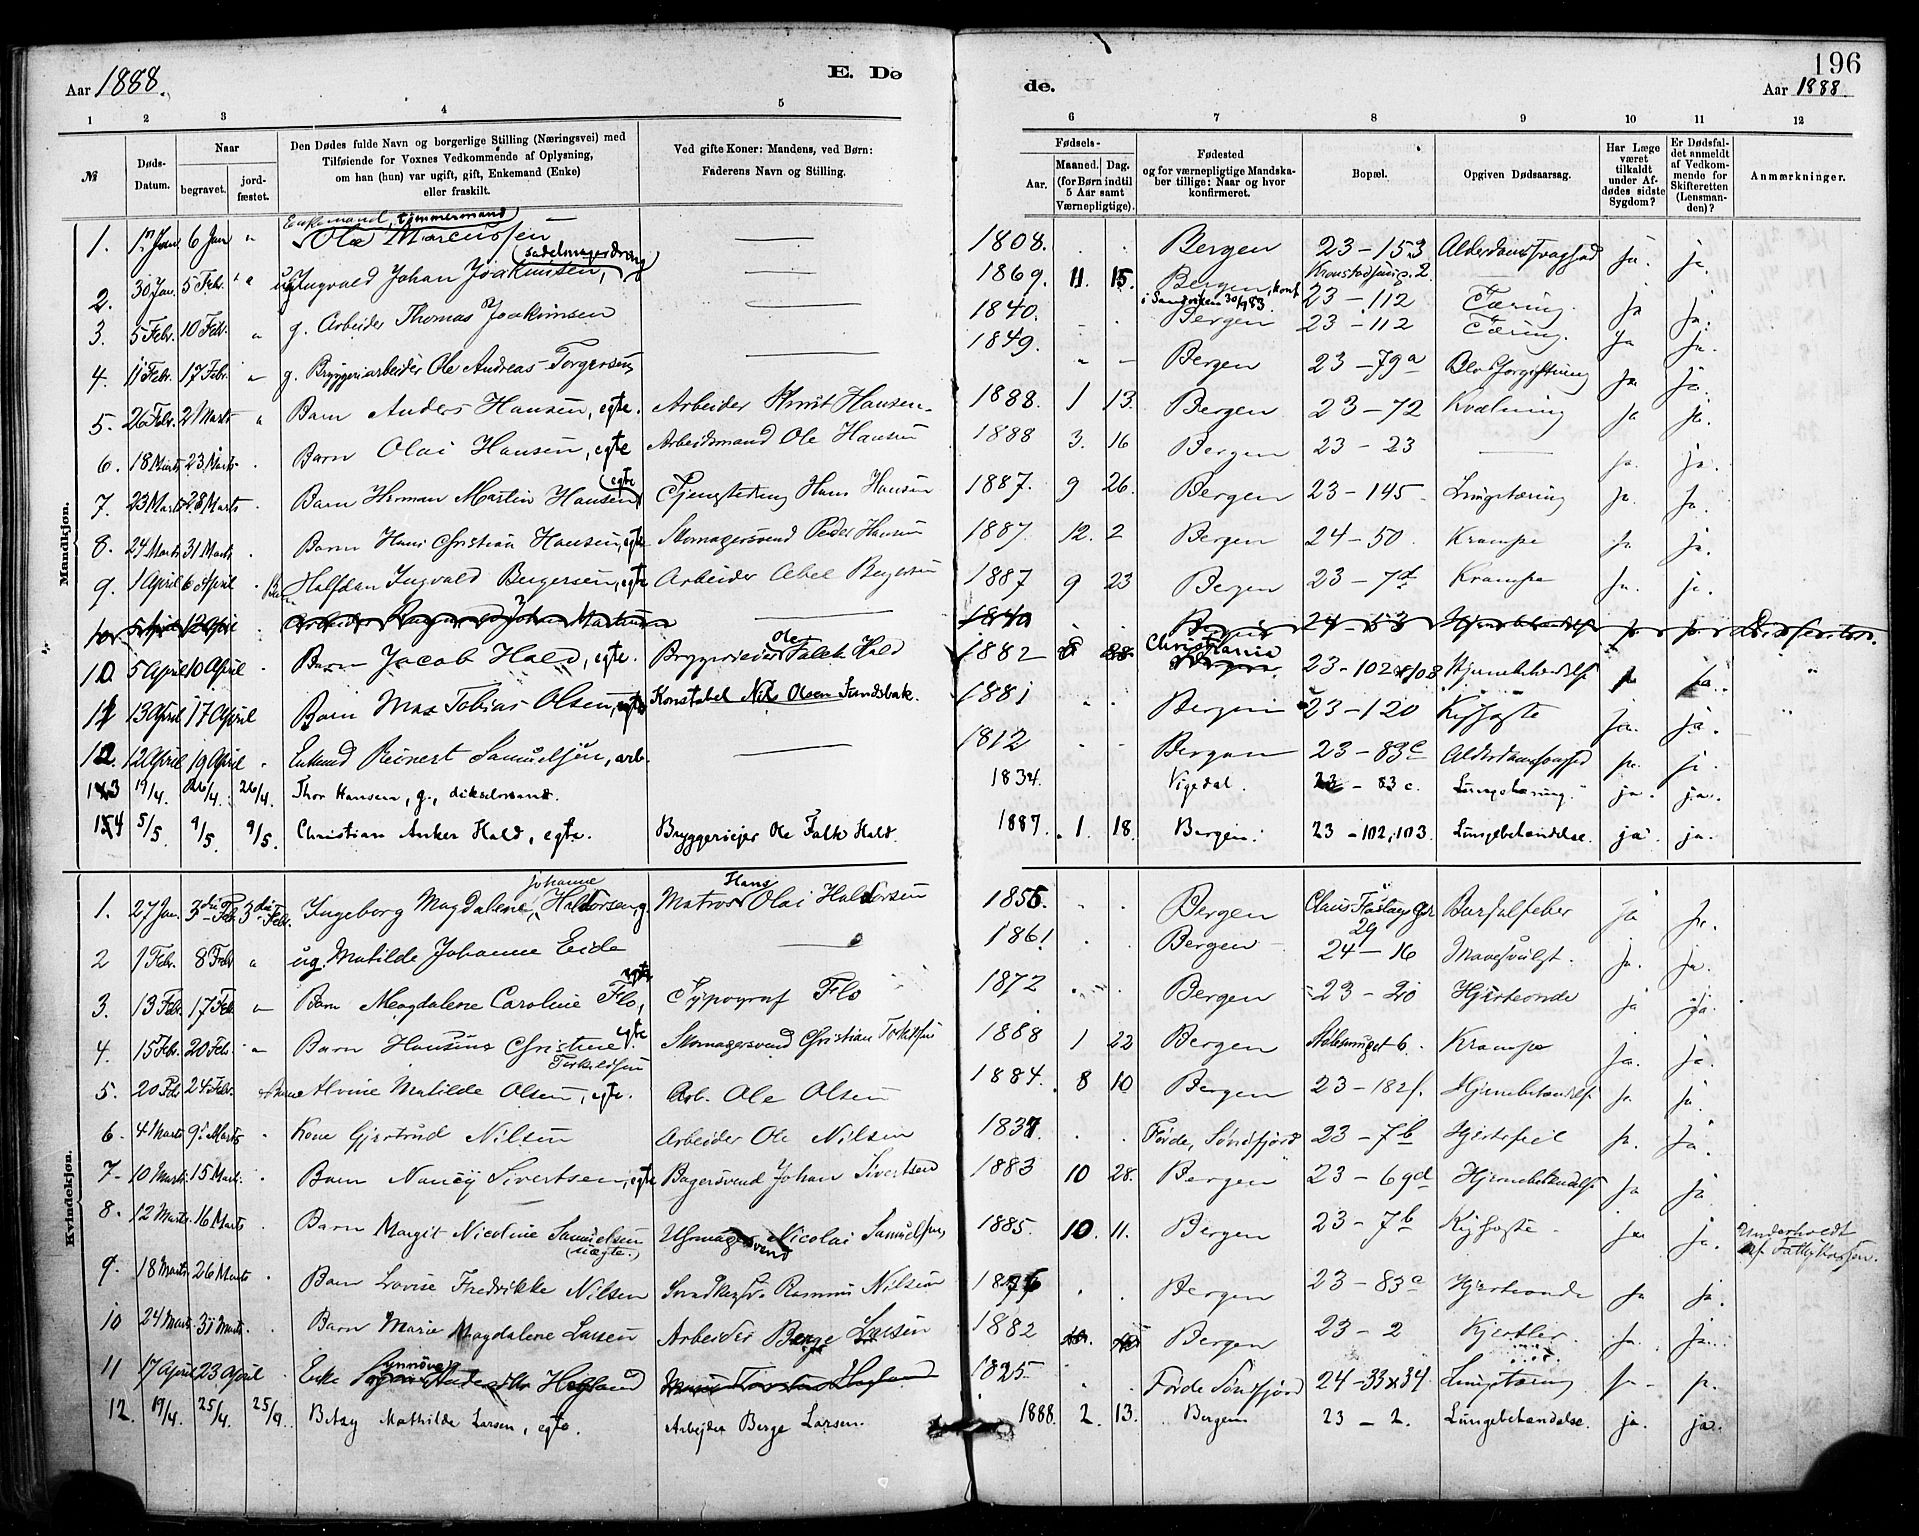 Aar 1888.
E. Dø
de.
196
Aar 1888.
1 2 3 4 5 6 7 8 9 10 11 12
№
Døds-Datum.
Naar
begravet.
jord-fæstet.
Den Dødes fulde Navn og borgerlige Stilling (Næringsvei) med
Tilføiende for Voxnes Vedkommende af Oplysning,
om han (hun) var ugift, gift, Enkemand (Enke)
eller fraskilt.
Ved gifte Koner: Mandens, ved Børn:
Faderens Navn og Stilling.
Fødsels-
Aar.
Maaned. Dag.
(for Børn indtil
5 Aar samt
Værnepligtige).
Fødested
og for værnepligtige Mandska-
ber tillige: Naar og hvor
konfirmeret.
Bopæl.
Opgiven Dødsaarsag.
Har Læge
været
tilkaldt
under Af-
dødes sidste
Sygdom?
Er Dødsfal-
det anmeldt
af Vedkom-
mende for
Skifteretten
(Lensman-
den)?
Anmærkninger.
Mandkjøn.
Enkemand, tømmermand
1. 6 Jan " Ole Marcussen — 1808. Bergen 23-153 ja. ja.
2. 30 Jan. 5 Febr. " ug Ingvald Johan Joakimsen, sadelmagerdreng — 1869. 11. 15. Bergen, konf. i Sandviken 30/9 83 23-112 Tæring ja ja.
3. 5 Febr. 10 Febr. " g. Arbeider Thomas Joakimsen 1840. Bergen 23-112 Tæring. ja ja.
4. 11 Febr. 17 Febr. " g. Bryggeriarbeider Ole Andreas Torgersen — 1849. Bergen 23-79a Blodforgiftning ja ja.
5. 26 Febr. 2 Marts " Barn Anders Hansen, egte. Arbeider Knut Hansen. 1888. 1 13. Bergen 23-72 Kvælning ja ja.
6. 18 Marts 23 Marts Barn Olai Hansen, egte Arbeidsmand Ole Hansen 1888 3. 16 Bergen 23-23 — ja. ja.
7. 23 Marts 28 Marts Barn Herman Martin Hansen egte Hans Hansen 1887. 9 26. Bergen 23-145 Lungetæring ja. ja.
8. 24 Marts 31 Marts Barn Hans Christian Hansen, egte Skomagersvend Peder Hansen 1887. 12. 2 Bergen 24-50. Krampe ja. ja.
9. 1 April 6 April Barn Halfdan Ingvald Bergersen, egte Arbeider Abel Bergersen 1887 9 23 Bergen 23-7d Krampe ja. ja.
10. 5 April 10 April Barn Jacob Hald, egte. Bryggerieier Ole Falck Hald 1882 Christiania 23-102 & 103 ja ja.
11 13 April 17 April Barn Max Tobias Olsen, egte Konstabel Nils Olsen Sundsbak. 1881 Bergen 23-120 Kighoste ja. ja.
12. 12 April 19 April Enkemd Reinert Samuelsen, arb. — 1812 Bergen 23-83c ja. ja.
13 19/4. 26/4. 26/4. Thor Hansen, g., dikselmand. 1834. Vigedal. 23-83c. Lungetæring. ja. ja.
14 5/5. 9/5. 9/5. Christian Anker Hald, egte. Bryggeriejer Ole Falk Hald. 1887. 1. 18. Bergen. 23-102, 103. Lungebetændelse. ja. ja.
Kvindekjøn.
1. 27 Jan. 3die Febr 3die Febr. Ingeborg Magdalene Johanne Haldorsen g. Matros Hans Olai Haldorsen 1856. Bergen 29 Barselfeber ja ja.
2 1 Febr. 8 Febr " ug. Matilde Johanne Eide — 1861 Bergen 24-16 Mavesvulst. ja. ja.
3. 13 Febr 17 Febr " Barn Magdalene Caroline Flo, egte Typograf Flo 1872 Bergen 23-20 Hjerteonde ja ja.
4. 15 Febr. 20 Febr. " Barn Hansine Christine Torkildsen egte Skomagersvend Christian Torkildsen 1888 1 22 Bergen Krampe ja. ja
5. 20 Febr 24 Febr. Alvine Matilde Olsen, egte. Arb. Ole Olsen 1884. 8 10 Bergen 23-182f. ja. ja.
6. 4 Marts 9 Marts Kone Gjertrud Nilsen Arbeider Ole Nilsen 1837. Førde, Søndfjord 23-7b Hjertefeil ja. ja.
7. 10 Marts 15 Marts Barn Nancy Sivertsen, egte Bagersvend Johan Sivertsen 1883 10 28. Bergen 23-69d ja ja
8. 12 Marts 16 Marts Barn Margit Nicoline Samuelsen (uægte.) Uhrmagersvend Nicolai Samuelsen 1885. 10. 11. Bergen 23-7b Kighoste ja. ja. Underholdt af Fattigkassen.
9. 18 Marts 26 Marts Barn Lovise Fredrikke Nilsen Rasmus Nilsen 1876 Bergen 23-83c Hjerteonde ja ja.
10 24 Marts 31 Marts Barn Marie Magdalene Larsen Arbeider Berge Larsen 1882 Bergen 23-2 Kjertler ja. ja.
11 17 April 23 April Enke Synnøve Hogland 1825. Førde Søndfjord 24-33 & 34. Lungetæring ja. ja.
12. 19/4. 25/4. 25/4. Betsy Mathilde Larsen, egte. Arbejder Berge Larsen. 1888. 2. 13. Bergen 23-2. Lungebetændelse. ja. ja.